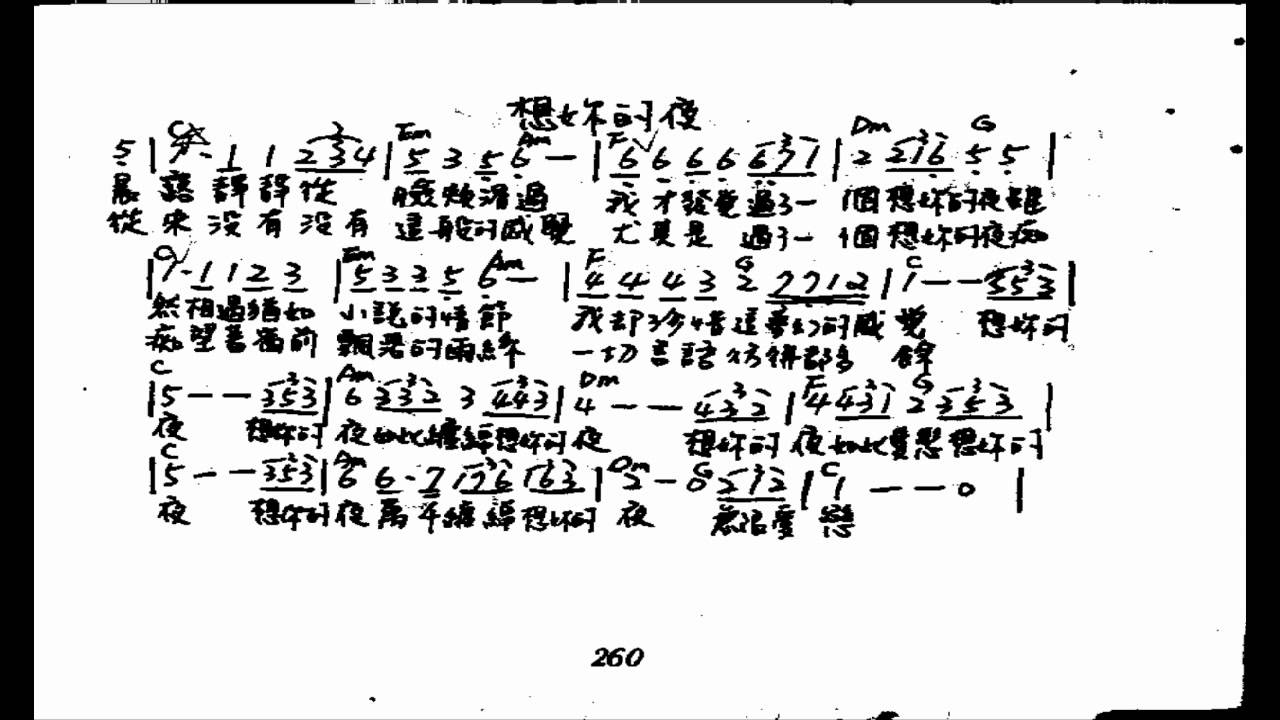 想妳的夜
C Em Am F Dm G
5 | 1· 1 1 2 3 4 | 5 3 5 6 — | 6 6 6 6 6 3 1 | 2 2 1 6 5 5 |
晨露靜靜從 臉頰滑過 我才發覺過了一個想妳的夜雖
從來沒有沒有這般的感覺 尤其是過了一個想妳的夜痴
C Em Am F G C
| 1· 1 1 2 3 | 5 3 3 5 6 — | 4 4 4 3 2 7 7 1 2 | 1 — — 5 5 3 |
然相遇猶如 小說的情節 我卻珍惜這夢幻的感覺 想妳的
痴望著窗前 飄落的雨絲 一切言語彷彿都多餘
C Am Dm F G
| 5 — — 3 5 3 | 6 3 3 2 3 4 4 3 | 4 — — 4 3 2 | 4 4 3 1 2 3 5 3 |
夜 想妳的夜如此纏綿想妳的夜 想妳的夜如此愛戀想妳的
C Am Dm G C
| 5 — — 3 5 3 | 6 6· 7 1 7 6 1 6 3 | 2 — 0 2 1 2 | 1 — — 0 |
夜 想妳的夜萬千纏綿想妳的 夜 無限愛戀
260